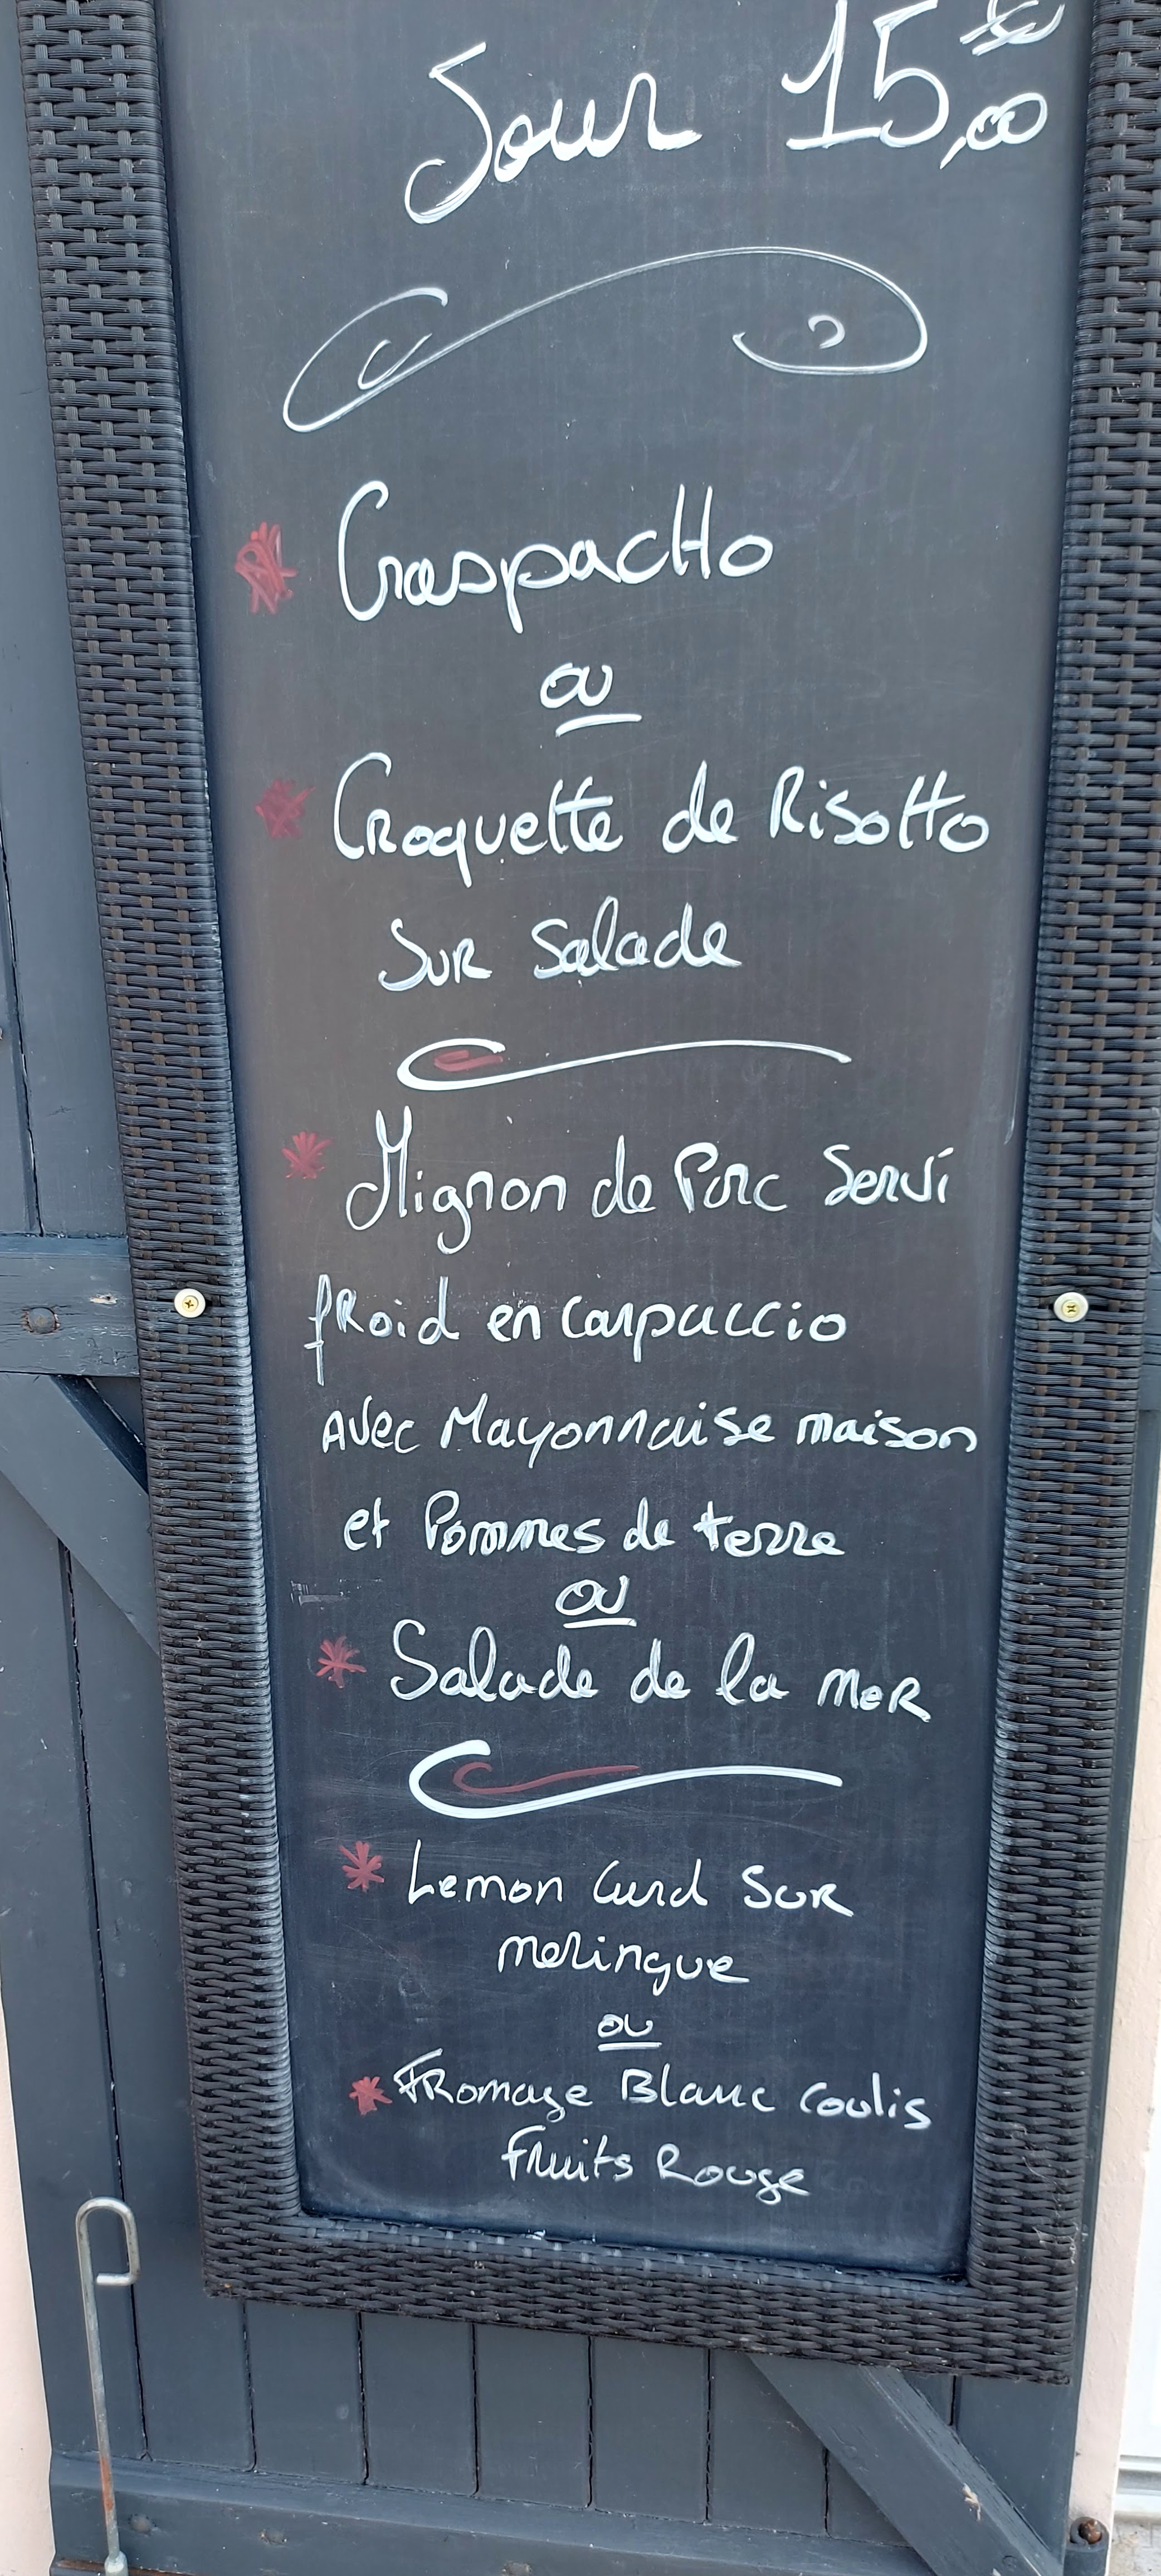 Jour 15,00
GaspacHo
ou
Croquette de Risotto
Sur Salade
Mignon de Porc Servi
froid en Carpaccio
avec Mayonnaise maison
et Pommes de terre
ou
Salade de la mer
Lemon Curd Sur
meringue
ou
Fromage Blanc Coulis
Fruits Rouge